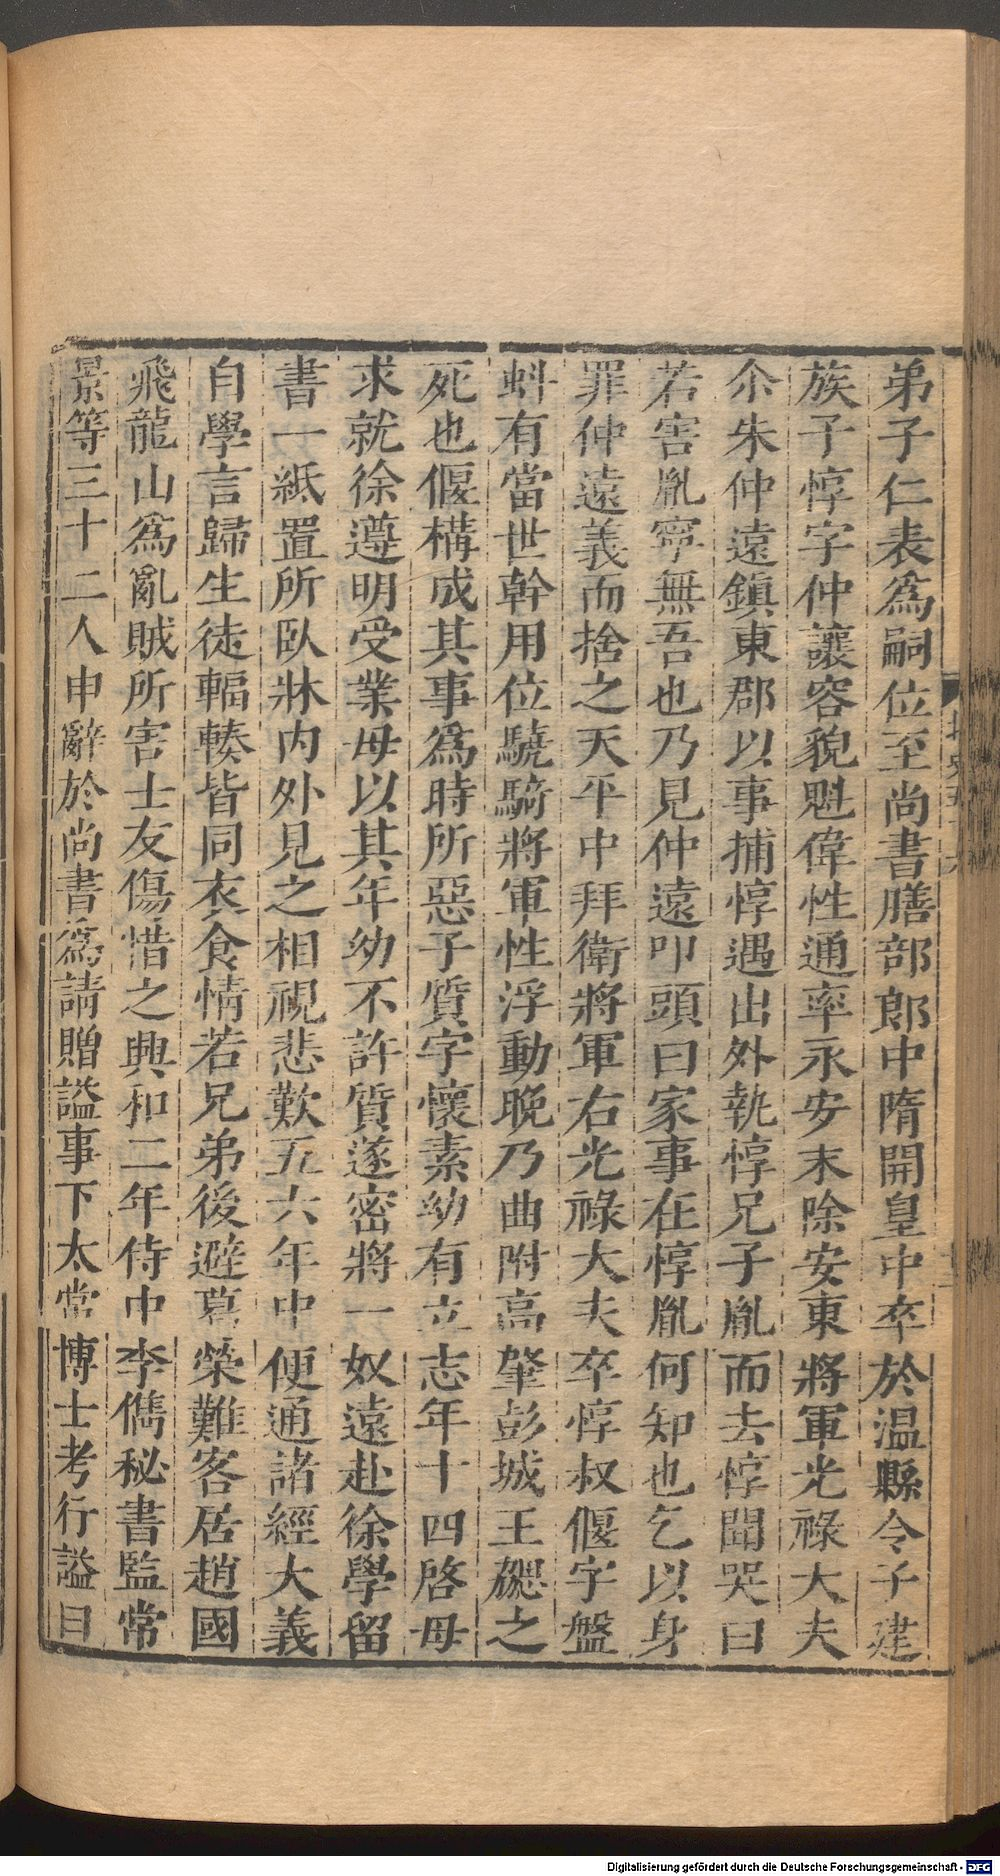 弟子仁表爲嗣位至尚書膳部郎中隋開皇中卒於温縣令子建
族子惇字仲讓容貌魁偉性通率永安末除安東將軍光祿大夫
尒朱仲遠鎮東郡以事捕惇遇出外執惇兄子胤而去惇聞哭曰
若害胤寧無吾也乃見仲遠叩頭曰家事在惇胤何知也乞以身
罪仲遠義而捨之天平中拜衛將軍右光祿大夫卒惇叔偃字盤
蚪有當世幹用位驍騎將軍性浮動晚乃曲附高肇彭城王勰之
死也偃構成其事爲時所惡子質字懷素幼有立志年十四啓母
求就徐遵明受業母以其年幼不許質遂密將一奴遠赴徐學留
書一紙置所臥牀内外見之相視悲歎五六年中便通諸經大義
自學言歸生徒輻輳皆同衣食情若兄弟後避葛榮難客居趙國
飛龍山爲亂賊所害士友傷惜之興和二年侍中李儁秘書監常
景等三十二人申辭於尚書爲請贈謚事下太常博士考行謚曰
Digitalisierung gefördert durch die Deutsche Forschungsgemeinschaft - DFG